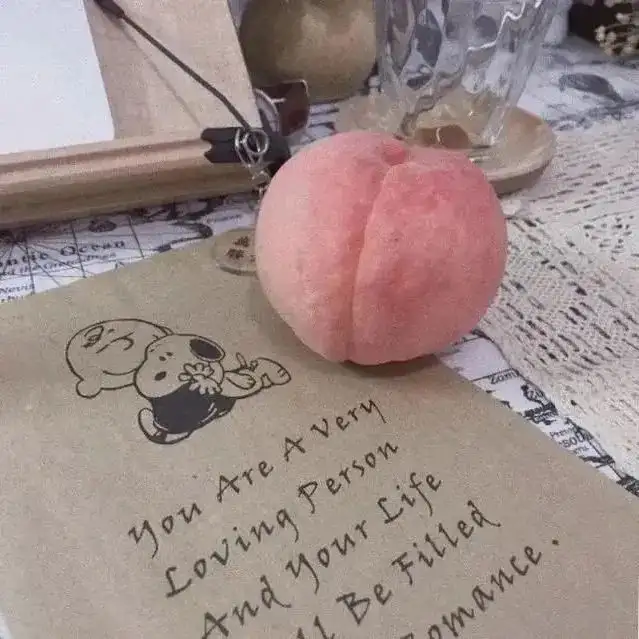 You Are A Very
Loving Person
And Your Life
Be Filled
Romance.